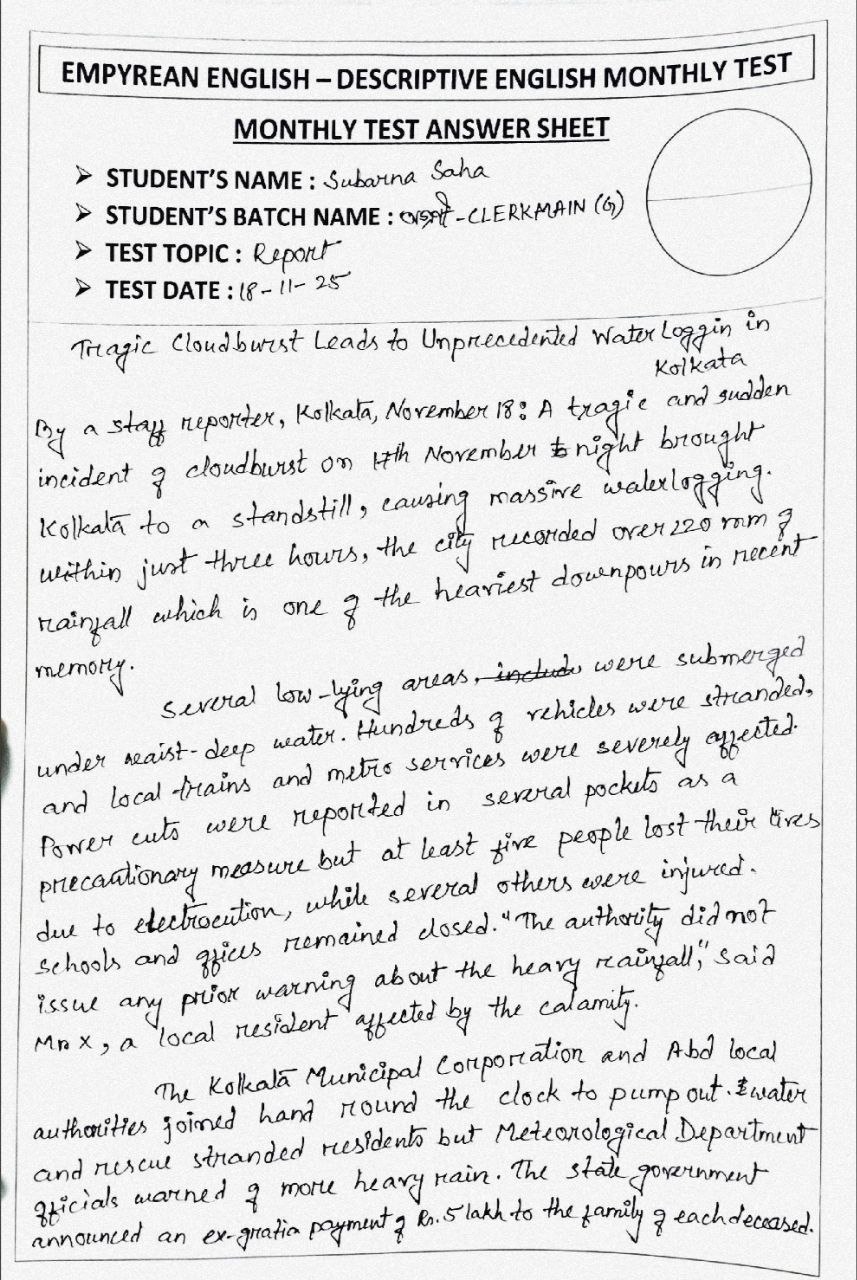 EMPYREAN ENGLISH – DESCRIPTIVE ENGLISH MONTHLY TEST
MONTHLY TEST ANSWER SHEET
➢ STUDENT'S NAME : Subarna Saha
➢ STUDENT'S BATCH NAME : -CLERKMAIN (G)
➢ TEST TOPIC : Report
➢ TEST DATE : 18-11-25
Tragic Cloudburst Leads to Unprecedented Water Loggin in
Kolkata
By a staff reporter, Kolkata, November 18: A tragic and sudden
incident of cloudburst on 17th November night brought
Kolkata to a standstill, causing massive waterlogging.
within just three hours, the city recorded over 220 mm of
rainfall which is one of the heaviest downpours in recent
memory.
Several low-lying areas, were submerged
under waist-deep water. Hundreds of vehicles were stranded,
and local trains and metro services were severely affected.
Power cuts were reported in several pockets as a
precautionary measure but at least five people lost their lives
due to electrocution, while several others were injured.
Schools and offices remained closed. "The authority did not
issue any prior warning about the heavy rainfall," said
Mr X, a local resident affected by the calamity.
The Kolkata Municipal Corporation and local
authorities joined hand round the clock to pump out. water
and rescue stranded residents but Meteorological Department
officials warned of more heavy rain. The state government
announced an ex-gratia payment of Rs. 5 lakh to the family of each deceased.